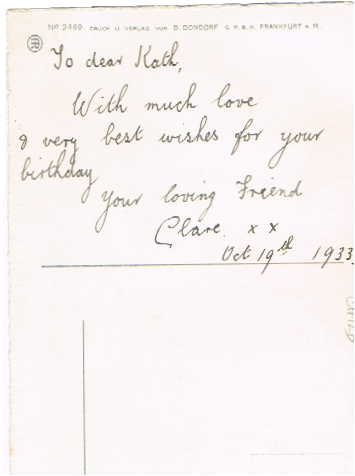 No 2469 DRUCK U. VERLAG VON B. DONDORF G. M. B. H. FRANKFURT A. M.
To dear Kath,
With much love
& very best wishes for your
birthday
Your loving Friend
Clare. x x
Oct 19th 1933.